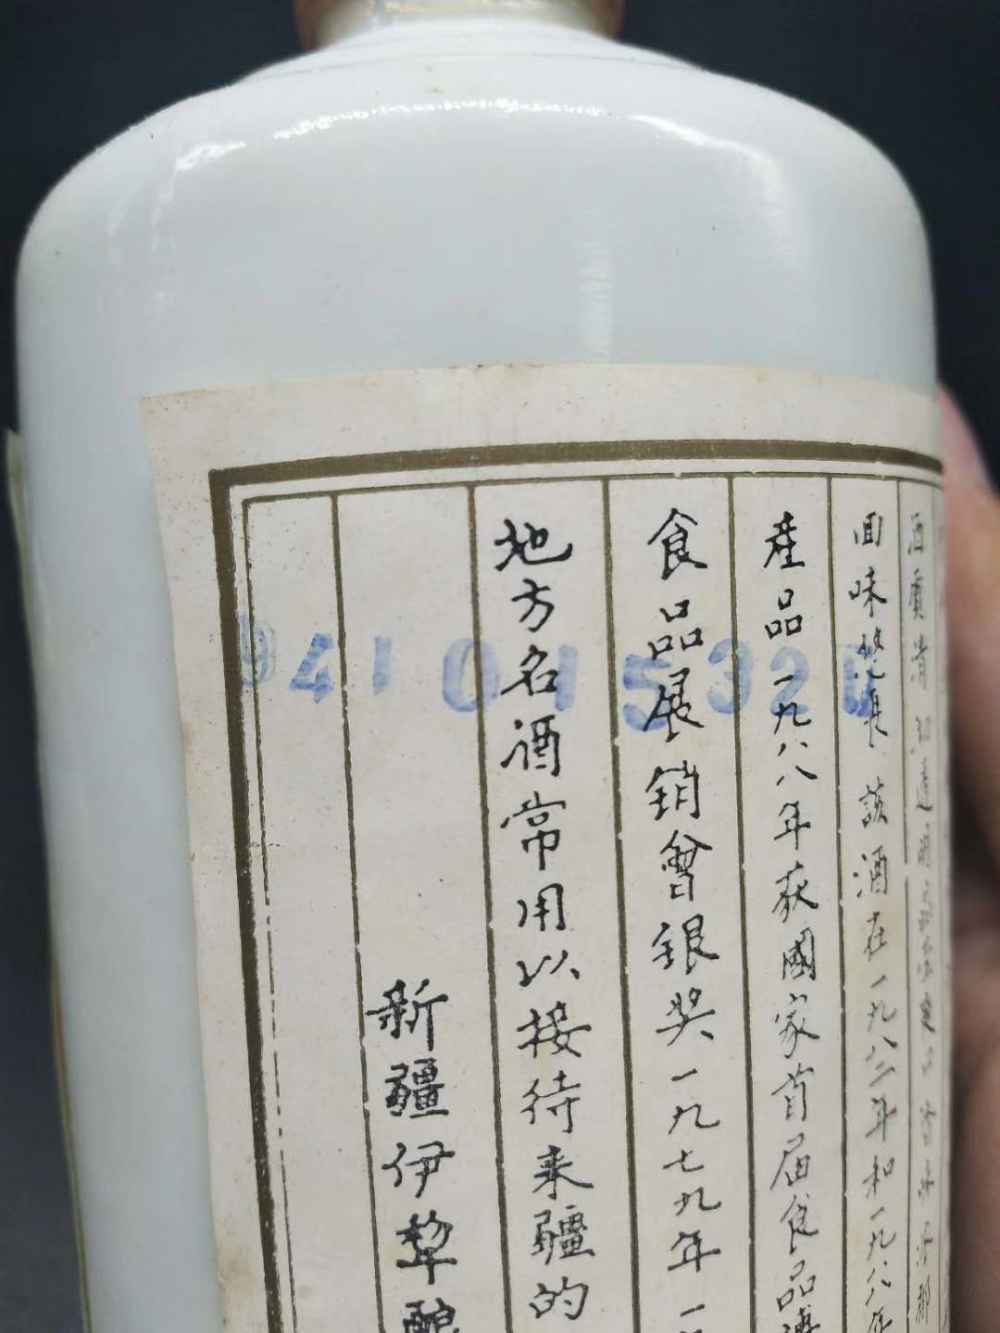 酒質清
回味悠長該酒在一九八二年和一九八八年
產品一九八八年获國家首届食品博
食品展销會銀奖一九七九年一
地方名酒常用以接待来疆的
新疆伊犂釀
941015320